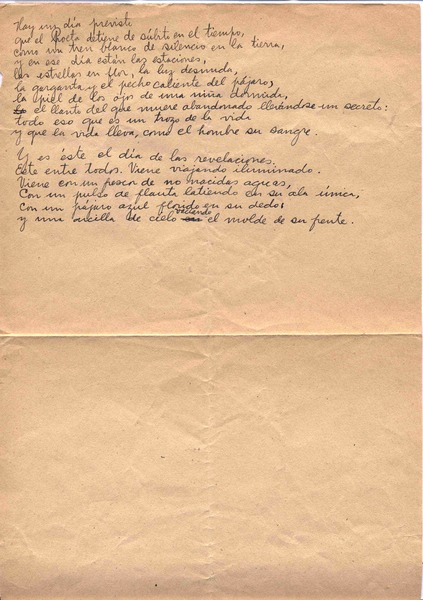 Hay un día previsto
que el poeta detiene de súbito en el tiempo,
como un tren blanco de silencio en la tierra,
y en ese día están las estaciones,
las estrellas en flor, la luz desnuda,
la garganta y el pecho caliente del pájaro,
la piel de los ojos de una niña dormida,
el llanto del que muere abandonado llevándose un secreto:
todo eso que es un trozo de la vida
y que la vida lleva, como el hombre su sangre.
Y es éste el día de las revelaciones.
Este entre todos. Viene viajando iluminado.
Viene con un frescor de no nacidas aguas,
con un pulso de flauta latiendo en su ala única,
con un pájaro azul florido en su dedo
y una arcilla de cielo el molde de su frente.